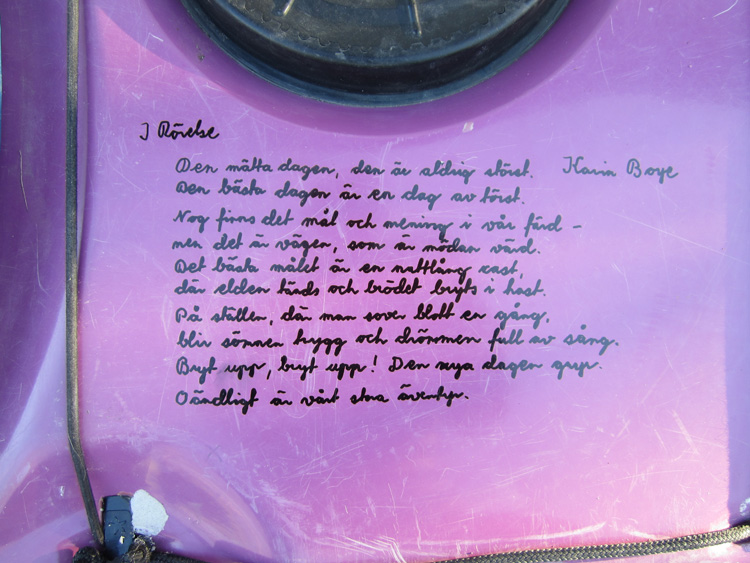 I Rörelse
Den mätta dagen, den är aldrig störst. Karin Boye
Den bästa dagen är en dag av törst.
Nog finns det mål och mening i vår färd -
men det är vägen, som är mödan värd.
Det bästa målet är en nattlång rast,
där elden tänds och brödet bryts i hast.
På ställen, där man sover blott en gång,
blir sömnen trygg och drömmen full av sång.
Bryt upp, bryt upp! Den nya dagen gryr.
Oändligt är vårt stora äventyr.